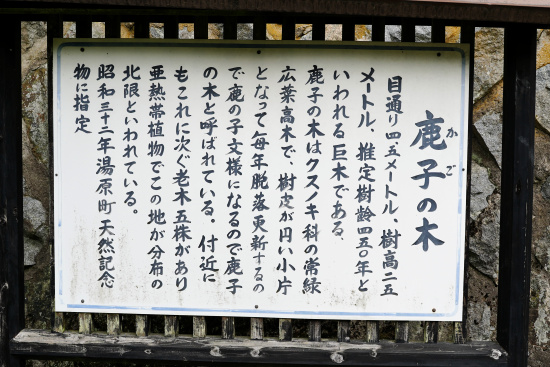 鹿子の木
かご
目通り四・五メートル、樹高二五
メートル、推定樹齢四五〇年と
いわれる巨木である。
鹿子の木はクスノキ科の常緑
広葉高木で、樹皮が円い小片
となって毎年脱落更新するの
で鹿の子文様になるので鹿子
の木と呼ばれている。付近に
もこれに次ぐ老木五株があり
亜熱帯植物でこの地が分布の
北限といわれている。
昭和三十二年湯原町天然記念
物に指定